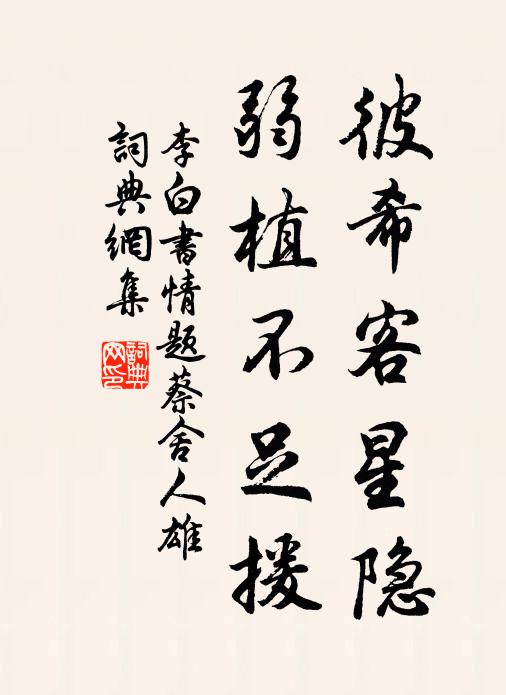 彼希客星隐
弱植不足援
李白書情题蔡舍人雄
詞典網集
詞典网印